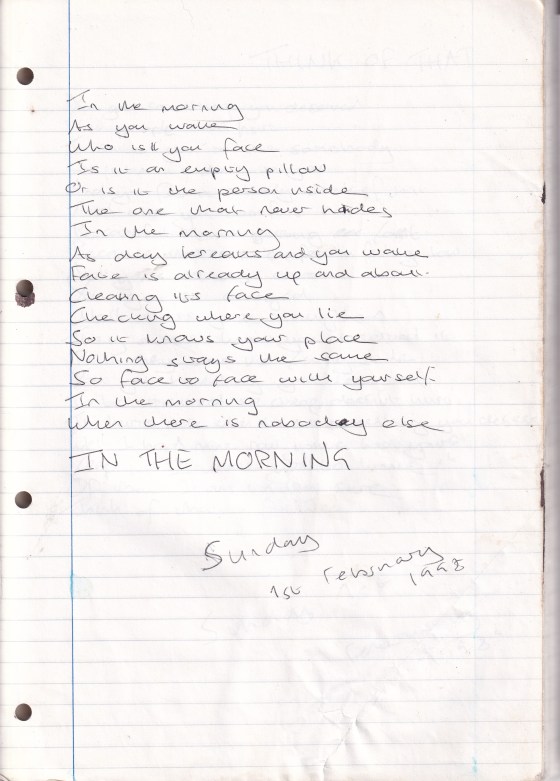 In the morning
As you wake
Who is it you face
Is it an empty pillow
Or is it the person inside
The one that never hides
In the morning
As day breaks and you wake
Face is already up and about.
Cleaning its face
Checking where you lie
So it knows your place
Nothing stays the same
So face to face with yourself.
In the morning
When there is nobody else
IN THE MORNING
Sunday
1st February 1998